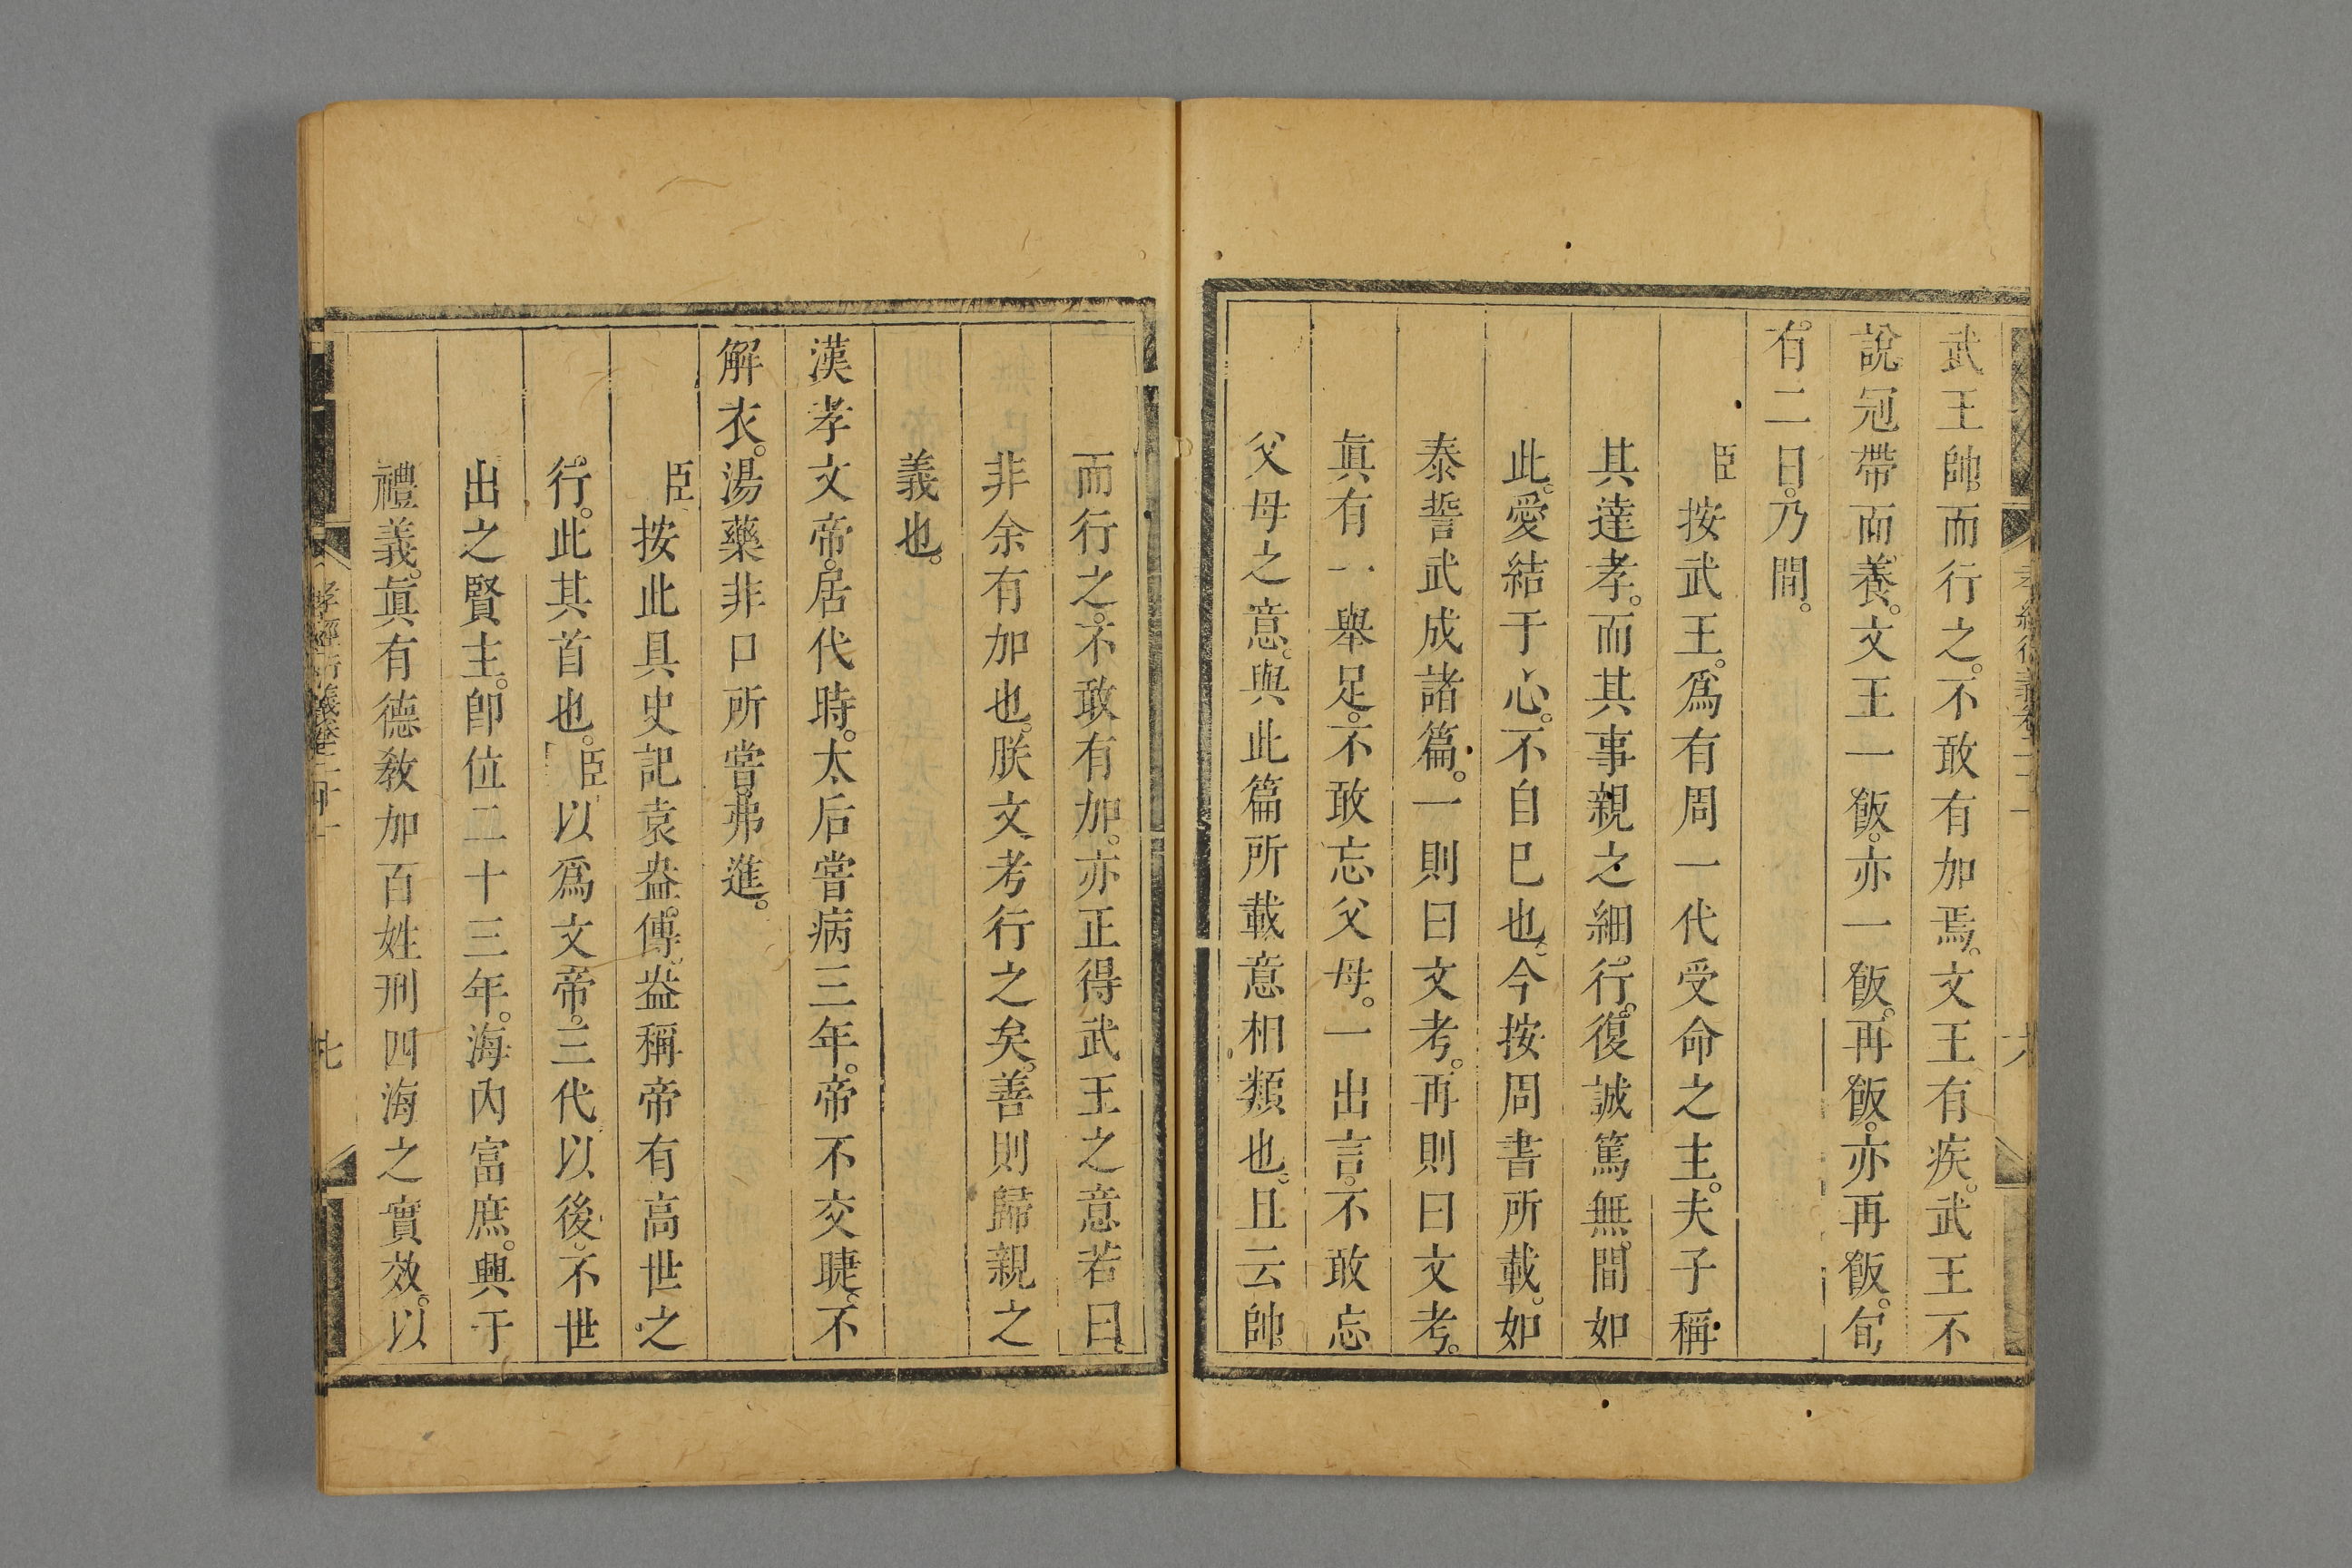 武王帥而行之。不敢有加焉。文王有疾。武王不
說冠帶而養。文王一飯。亦一飯。再飯。亦再飯。旬
有二日。乃閒。
臣按武王。爲有周一代受命之主。夫子稱
其達孝。而其事親之細行。復誠篤無間如
此。愛結于心。不自已也。今按周書所載。如
泰誓武成諸篇。一則曰文考。再則曰文考。
眞有一舉足。不敢忘父母。一出言。不敢忘
父母之意。與此篇所載意相類也。且云帥
而行之。不敢有加。亦正得武王之意若曰
非余有加也。朕文考行之矣。善則歸親之
義也。
漢孝文帝。居代時。太后嘗病三年。帝不交睫。不
解衣。湯藥非口所嘗。弗進。
臣按此具史記袁盎傳。盎稱帝有高世之
行。此其首也。臣以爲文帝。三代以後。不世
出之賢主。卽位二十三年。海內富庶。興于
禮義。眞有德敎加百姓刑四海之實效。以
孝經衍義卷二十